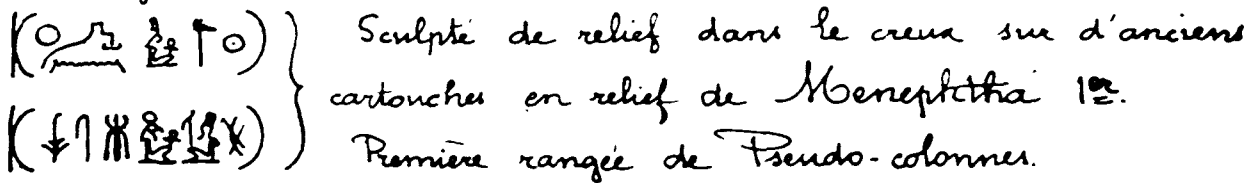 Sculpté de relief dans le creux sur d'anciens
cartouches en relief de Menephtha 1er.
Première rangée de Pseudo-colonnes.